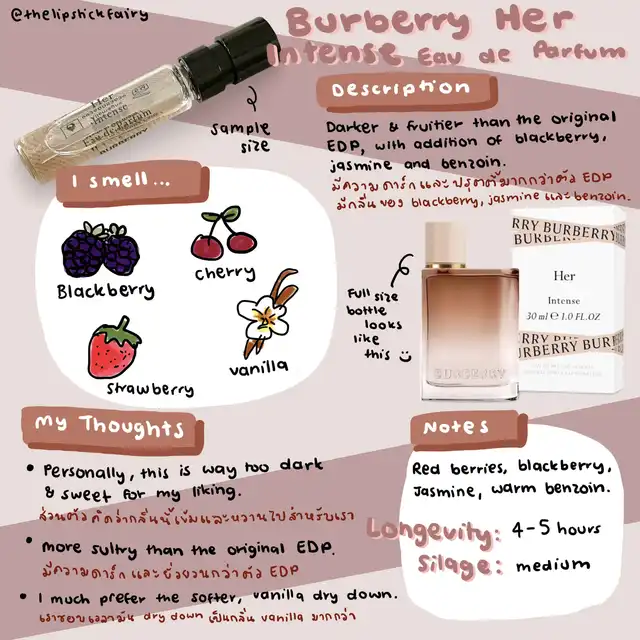 @thelipstickfairy
Burberry Her
Intense Eau de Parfum
Her
Intense
Eau de Parfum
BURBERRY
sample
size
Description
Darker & fruitier than the original
EDP, with addition of blackberry,
jasmine and benzoin.
มีความดาร์ก และ ฟรุตตี้มากกว่าตัว EDP
มีกลิ่นของ blackberry, jasmine และ benzoin.
I smell...
Blackberry
cherry
strawberry
vanilla
Full size
bottle
looks
like
this
BURBERRY
RRY BURBERRY
BURBERRY
Her
Intense
30 ml ℮ 1.0 FL.OZ
My Thoughts
• Personally, this is way too dark
& sweet for my liking.
ส่วนตัวคิดว่ากลิ่นนี้เข้มและหวานไปสำหรับเรา
• more sultry than the original EDP.
มีความดาร์ก และยั่วยวนกว่าตัว EDP
• I much prefer the softer, vanilla dry down.
เราชอบเวลามัน dry down เป็นกลิ่น vanilla มากกว่า
Notes
Red berries, blackberry,
Jasmine, warm benzoin.
Longevity: 4-5 hours
Silage: medium